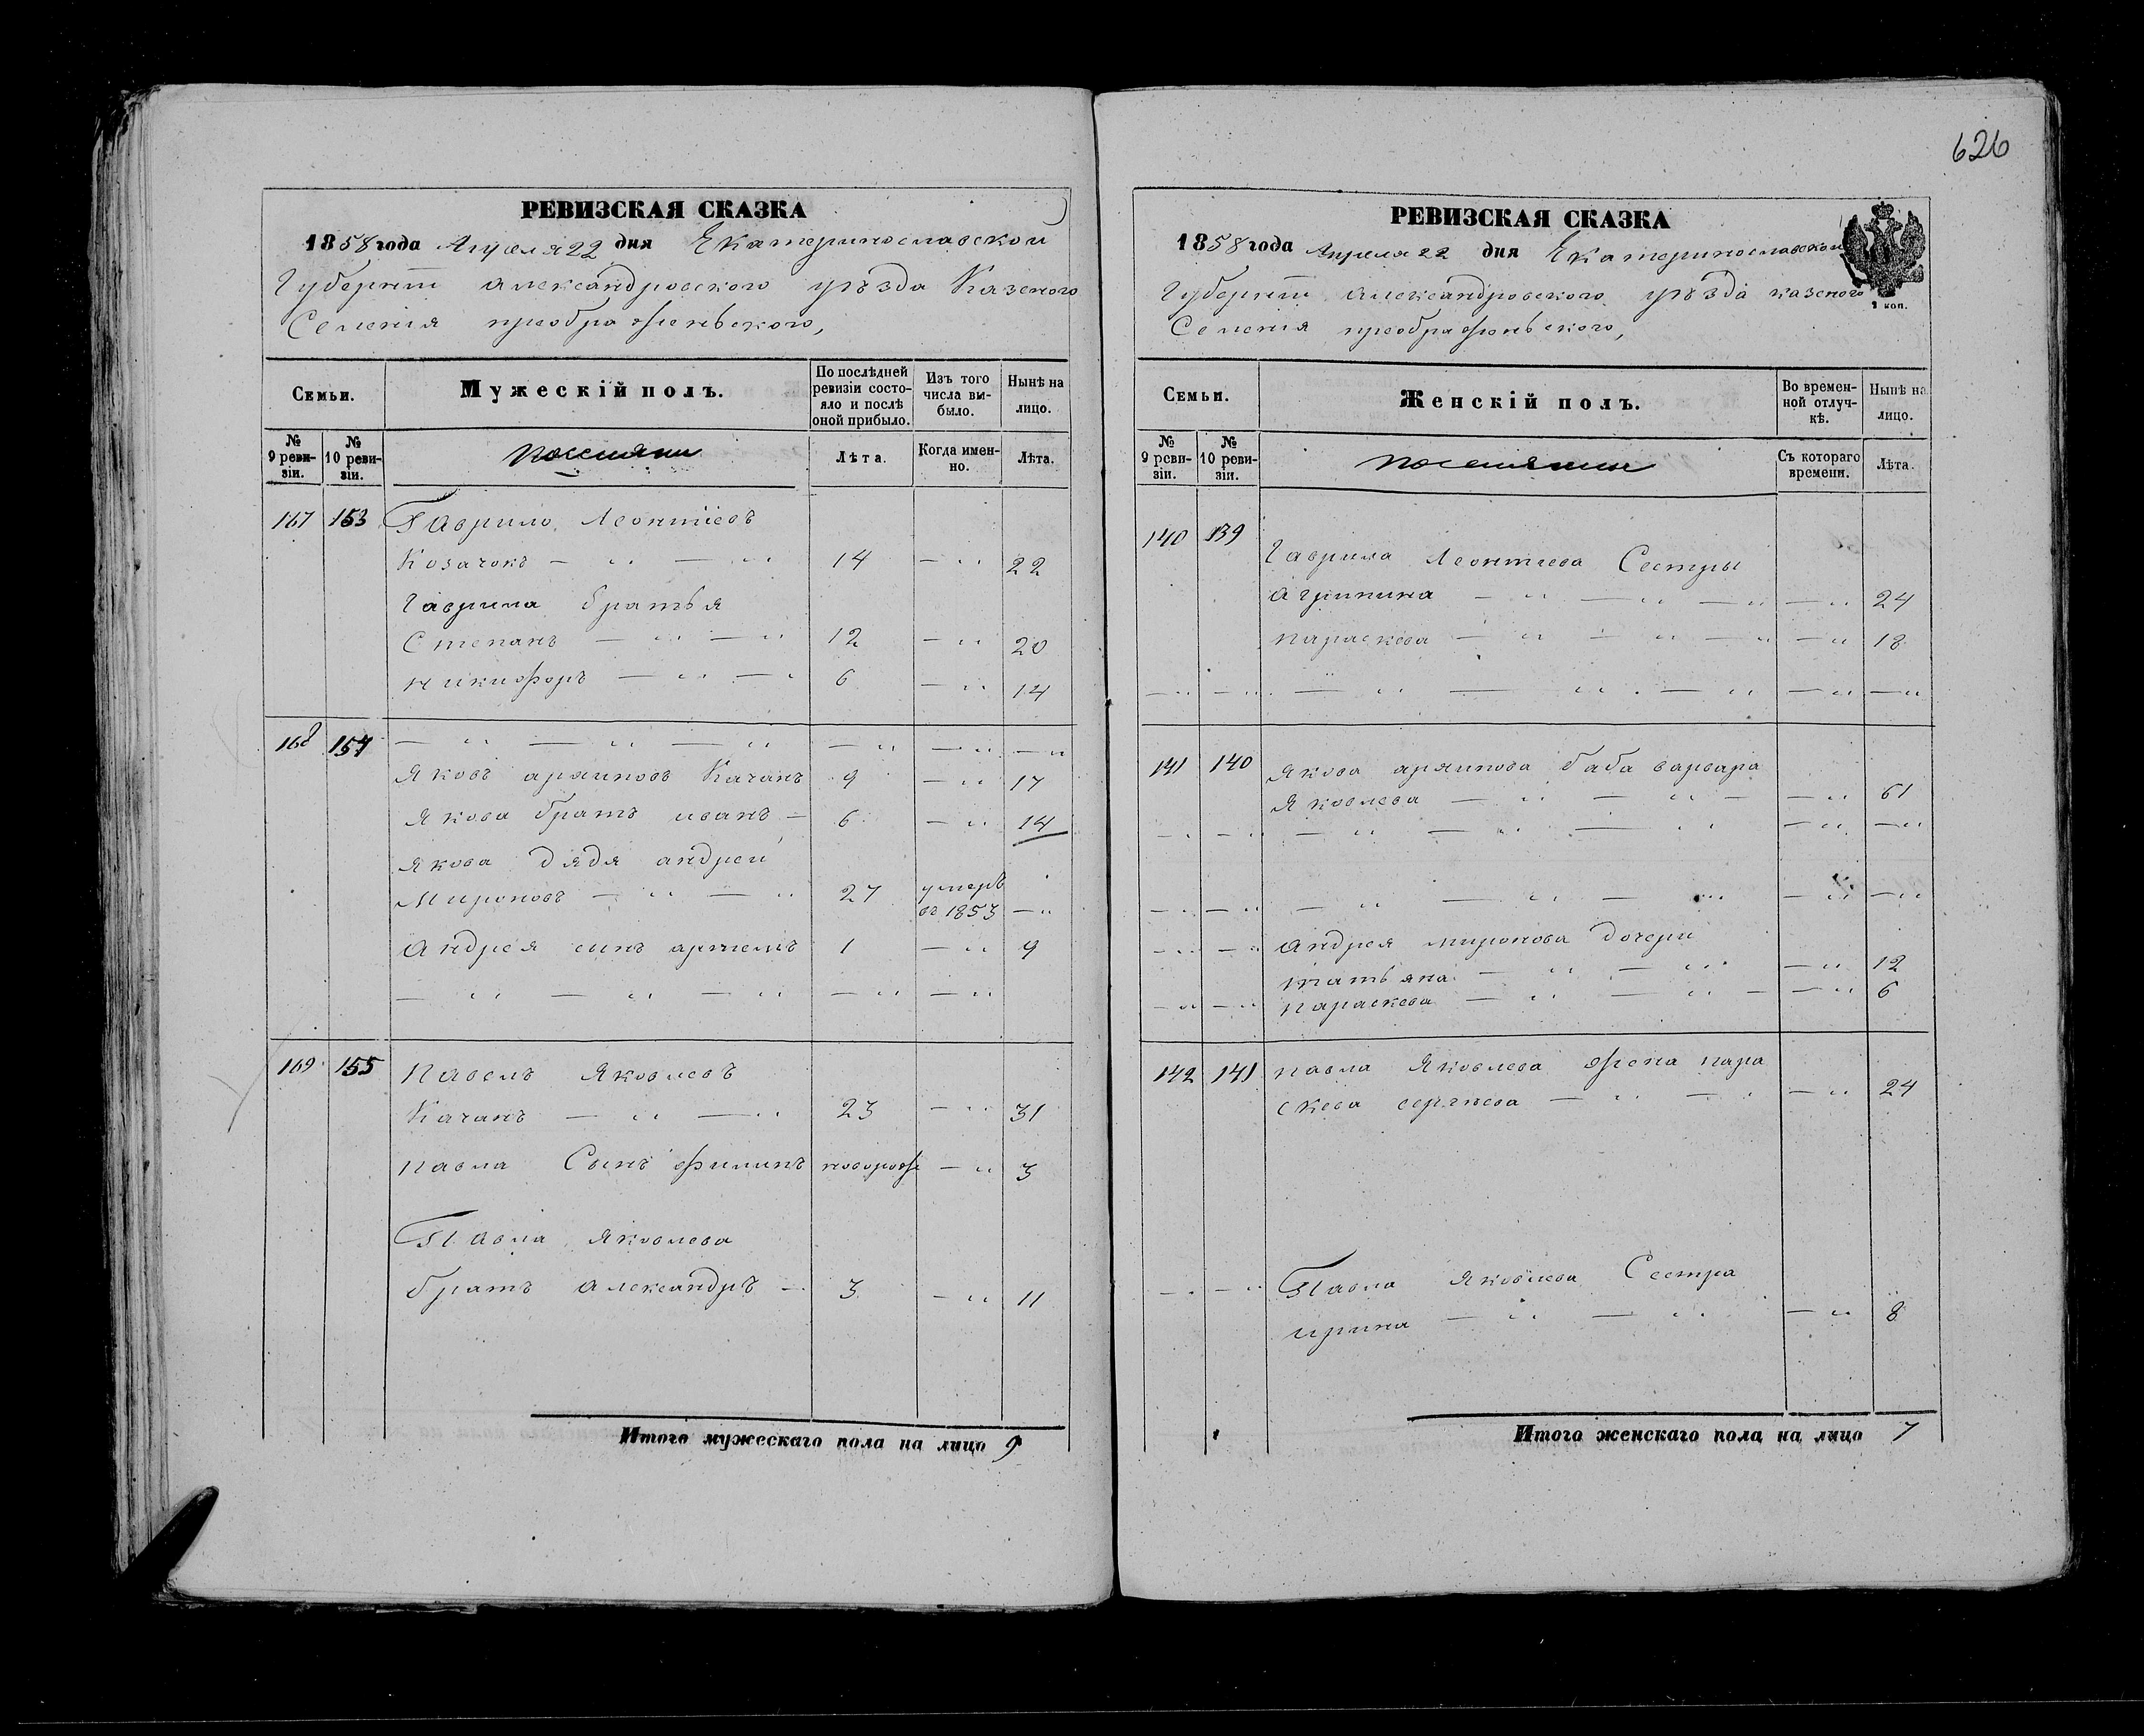 626
РЕВИЗСКАЯ СКАЗКА
1858 года Апреля 22 дня Екатеринославской
Губерніи Александровского уѣзда Казеного
Селенія преображеньского,
Семьи.
Мужескій полъ.
По послѣдней ревизіи состояло и послѣ оной прибыло.
Изъ того числа выбыло.
Нынѣ на лицо.
№ 9 ревизіи.
№ 10 ревизіи.
поселяни
Лѣта.
Когда именно.
Лѣта.
167 153 Гаврило Леонтіевъ
Козачокъ — " — " 14 — " 22
Гаврила братья
Степанъ — " — " 12 — " 20
Никифоръ — " — " 6 — " 14
168 154 — " — " — " — " — " — "
Яковъ архиповъ Качанъ 9 — " 17
Якова братъ иванъ — 6 — " 14
Якова дядя андрей
Мироновъ — " — " 27 умеръ въ 1853 — "
Андрея сынъ артемъ 1 — " 9
— " — " — " — " — "
169 155 Павелъ Яковлевъ
Качанъ — " — " 23 — " 31
павла Сынъ филипъ новорож — " 3
Павла Яковлева
братъ Александръ — 3 — " 11
Итого мужескаго пола на лицо 9
РЕВИЗСКАЯ СКАЗКА
1858 года Апреля 22 дня Екатеринославской
Губерніи Александровского уѣзда казеного
Селенія преображеньского,
1 коп.
Семьи.
Женскій полъ.
Во временной отлучкѣ.
Нынѣ на лицо.
№ 9 ревизіи.
№ 10 ревизіи.
Съ котораго времени.
Лѣта.
140 139
Гаврила Леонтіева Сестры
Агрипина — " — " — " — " 24
параскева — " — " — " — " 18
— " — " — " — " — " — " — "
141 140 Якова архипова баба варвара
Яковлева — " — " — — " 61
— " — " — " — " — " — " — "
— " — " — " — " — " — " — "
— " — " Андрея миронова дочери
татьяна — " — " — " 12
— " — " параскева — " — " — — " 6
142 141 павла Яковлева жена пара
скева сергѣева — " — " — " 24
— " — " Павла Яковлева Сестра
ирина — " — " — " 8
Итого женскаго пола на лицо 7